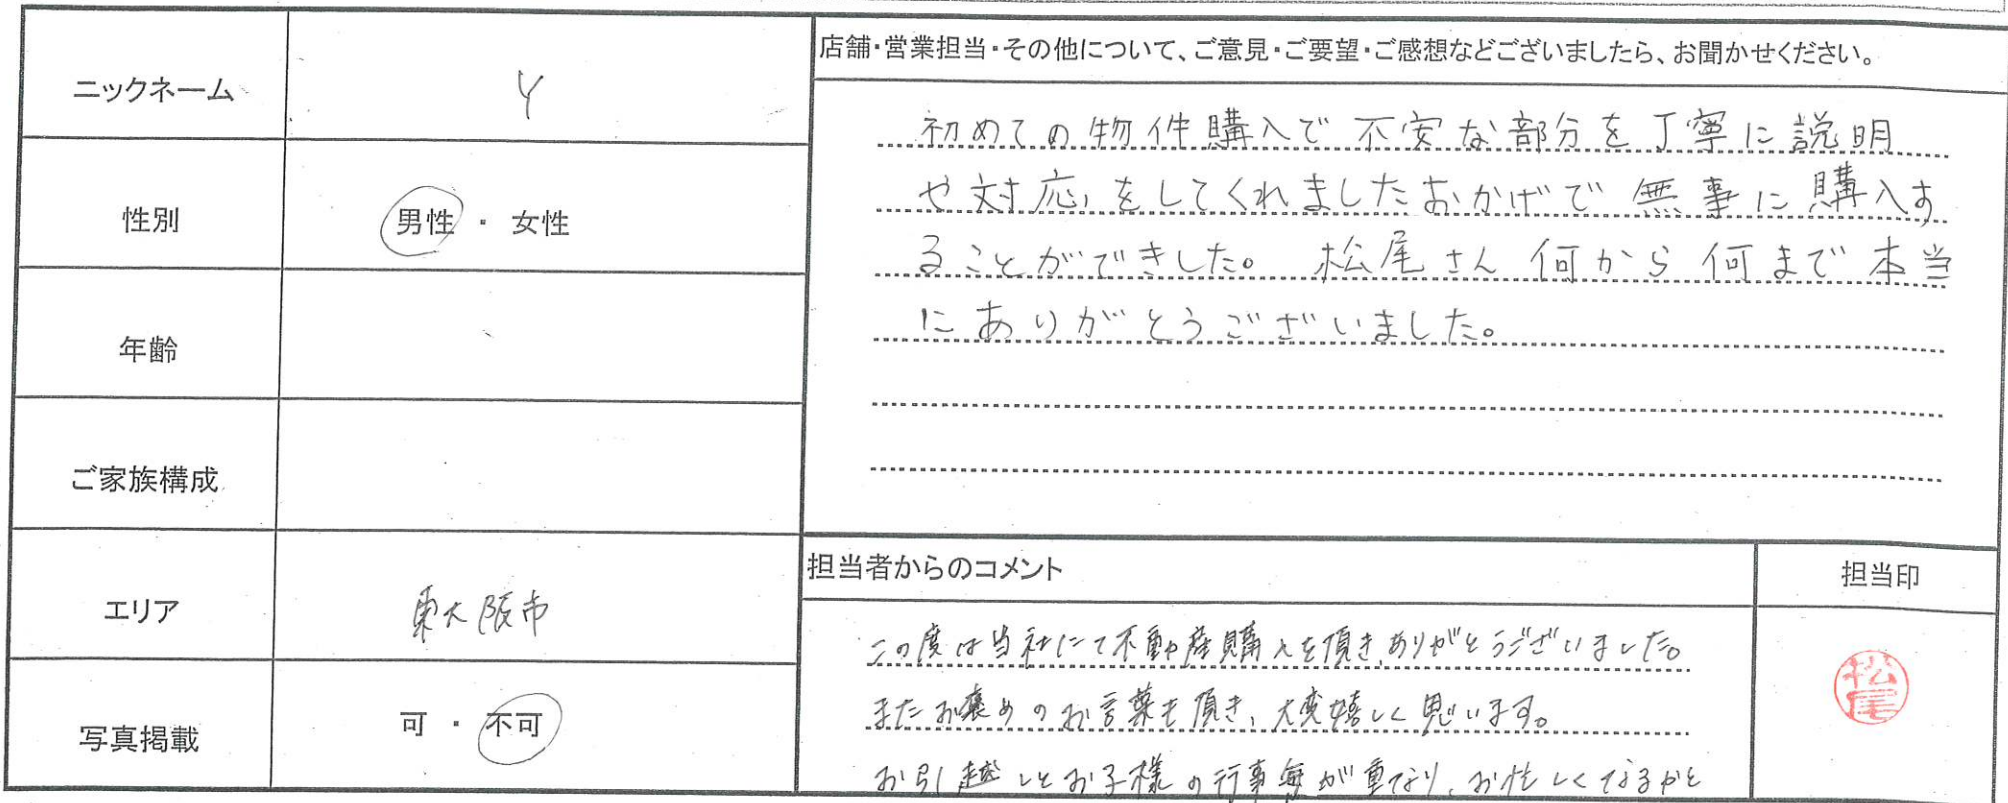 ニックネーム
Y
性別
男性 ・ 女性
年齢
ご家族構成
エリア
東大阪市
写真掲載
可 ・ 不可
店舗・営業担当・その他について、ご意見・ご要望・ご感想などございましたら、お聞かせください。
初めての物件購入で不安な部分を丁寧に説明
や対応をしてくれましたおかげで無事に購入す
ることができました。 松尾さん 何から何まで本当
にありがとうございました。
担当者からのコメント
この度は当社にて不動産購入を頂き、ありがとうございました。
またお褒めのお言葉も頂き、大変嬉しく思います。
お引越しとお子様の行事毎が重なり、お忙しくなるかと
担当印
松尾